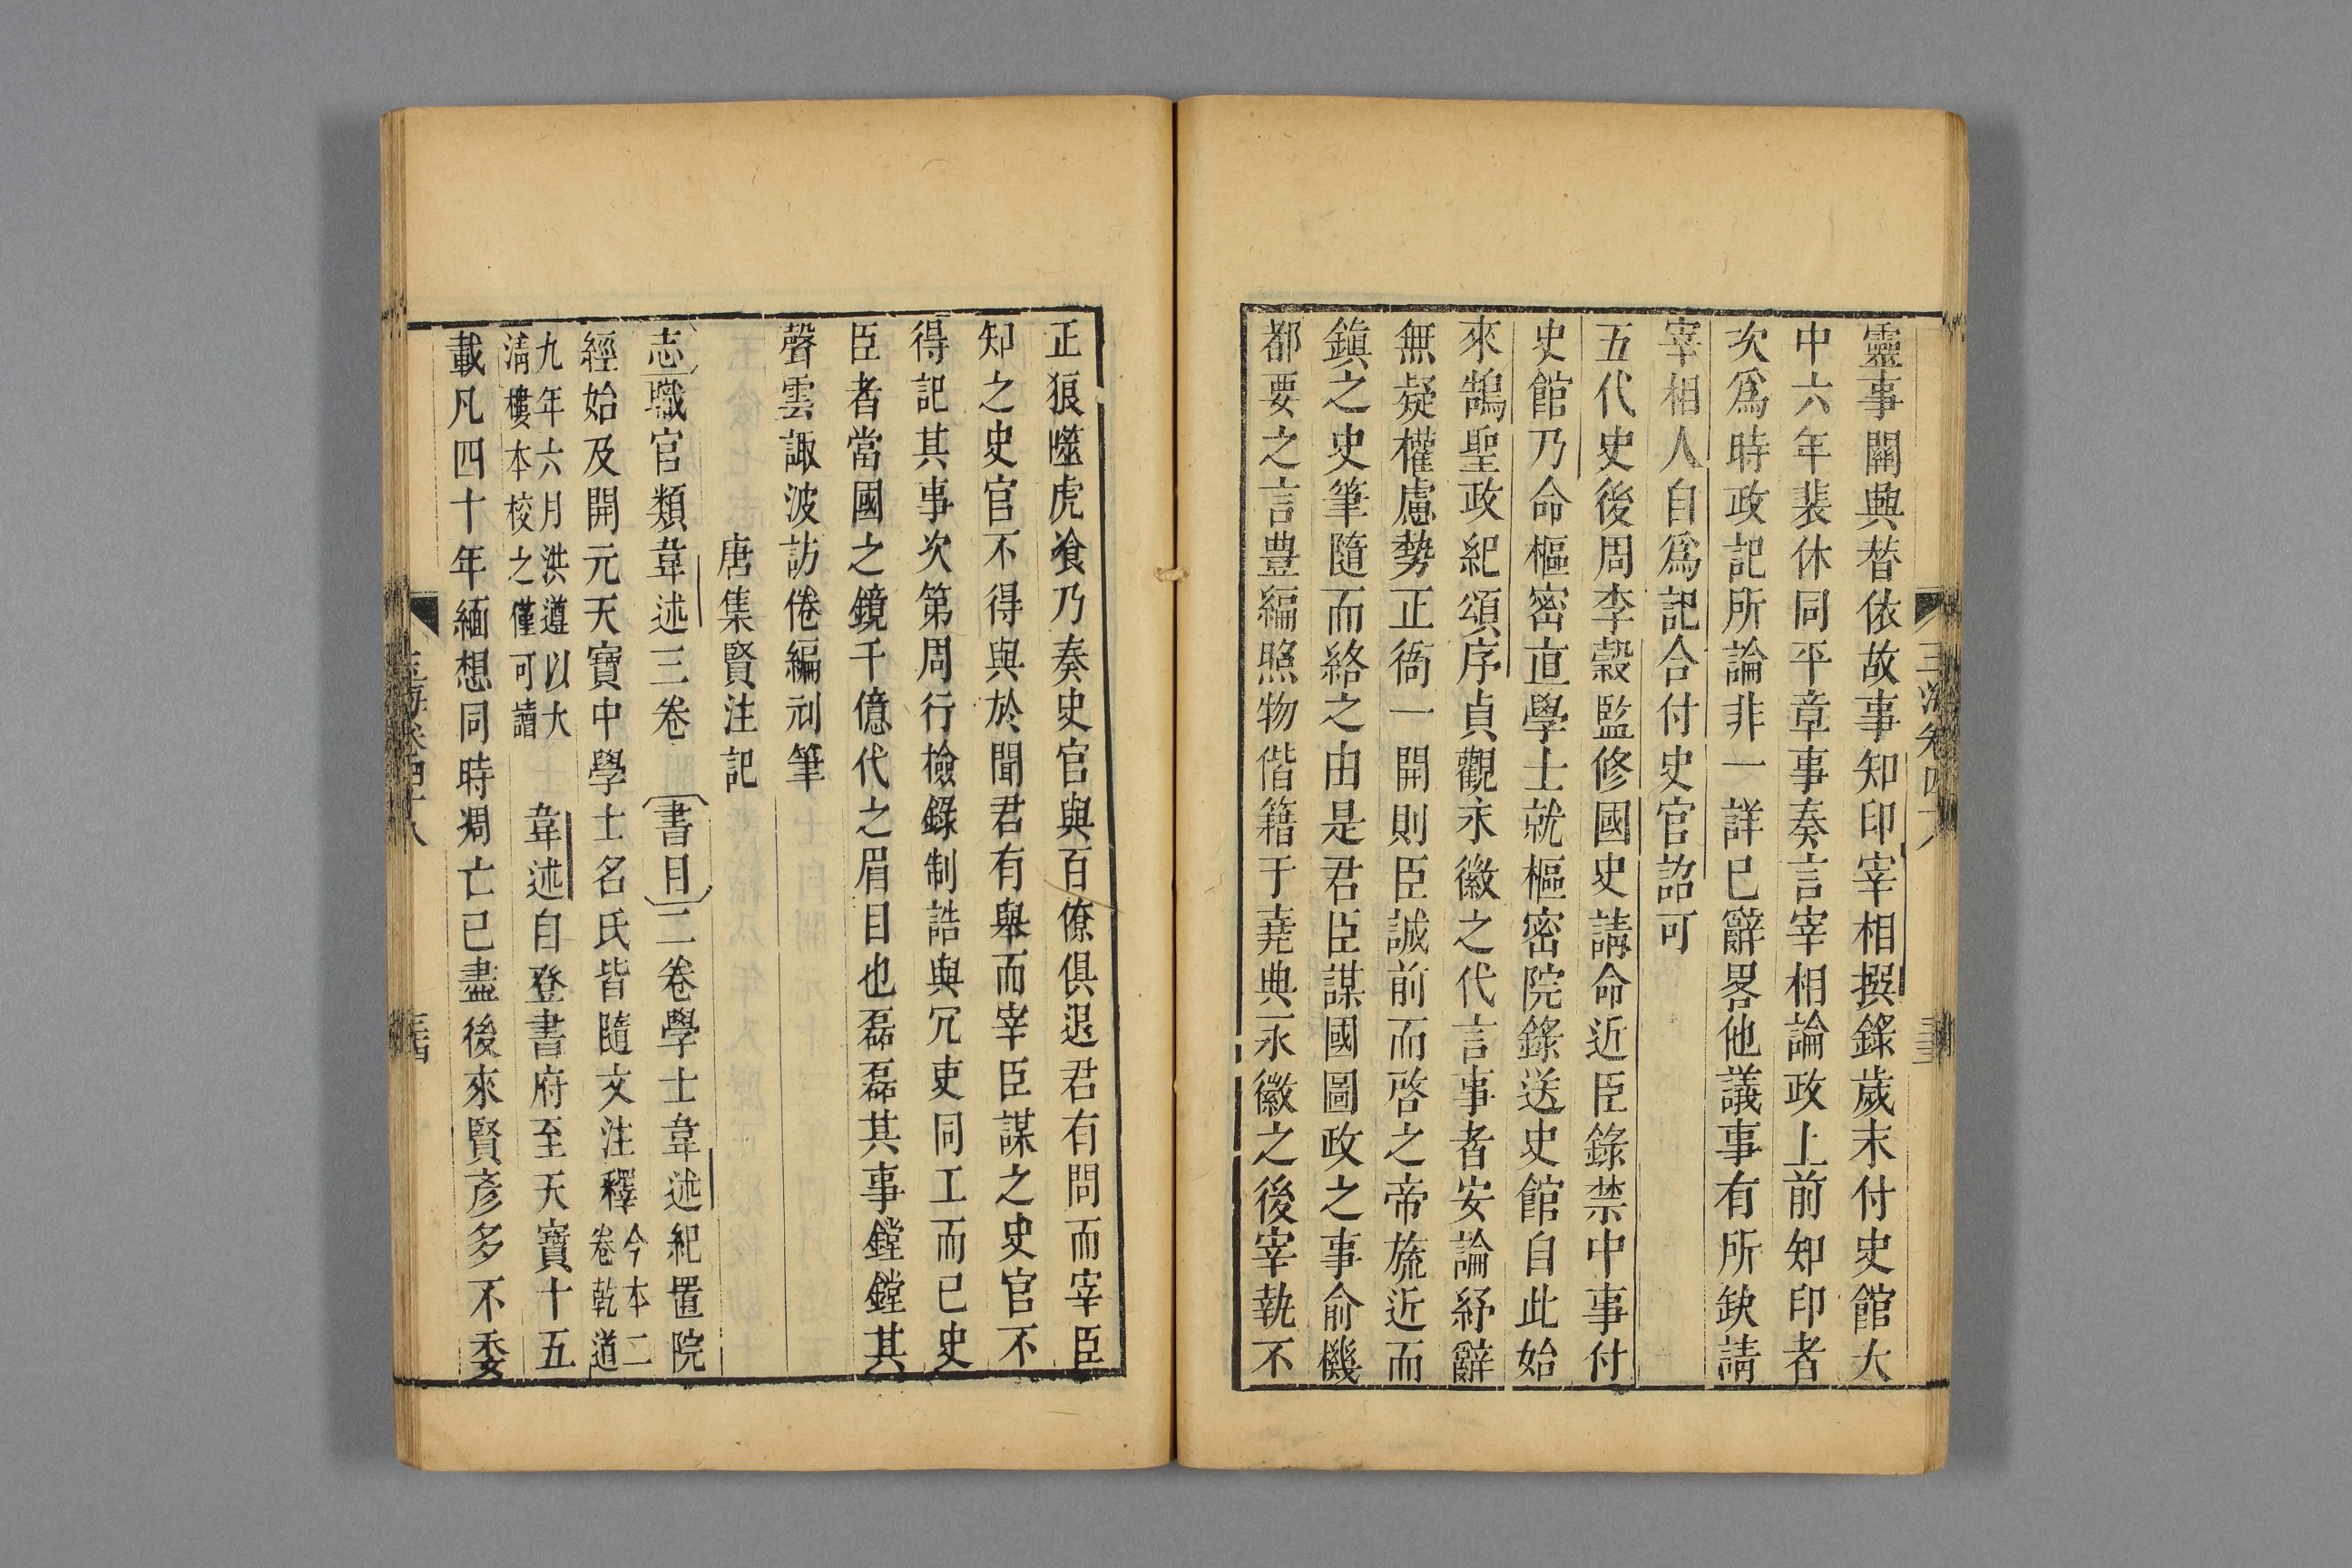 靈事關典替依故事知印宰相撰錄歲末付史館大
中六年裴休同平章事奏言宰相論政上前知印者
次爲時政記所論非一詳已辭畧他議事有所缺請
宰相人自爲記合付史官詔可
五代史後周李穀監修國史請命近臣錄禁中事付
史館乃命樞密直學士就樞密院錄送史館自此始
來鵠聖政紀頌序貞觀永徽之代言事者安論紓辭
無疑權慮勢正衙一開則臣誠前而啓之帝旒近而
鎮之史筆隨而絡之由是君臣謀國圖政之事俞機
都要之言豊編照物偕籍于堯典永徽之後宰執不
正狼噬虎飡乃奏史官與百僚俱退君有問而宰臣
知之史官不得與於聞君有舉而宰臣謀之史官不
得記其事次第周行檢錄制誥與冗吏同工而已史
臣者當國之鏡千億代之眉目也磊磊其事鏜鏜其
聲雲諏波訪倦編刓筆
唐集賢注記
志職官類韋述三卷 書目二卷學士韋述紀置院
經始及開元天寶中學士名氏皆隨文注釋今本二
卷乾道
九年六月洪遵以大
淸樓本校之僅可讀 韋述自登書府至天寶十五
載凡四十年緬想同時凋亡已盡後來賢彥多不委